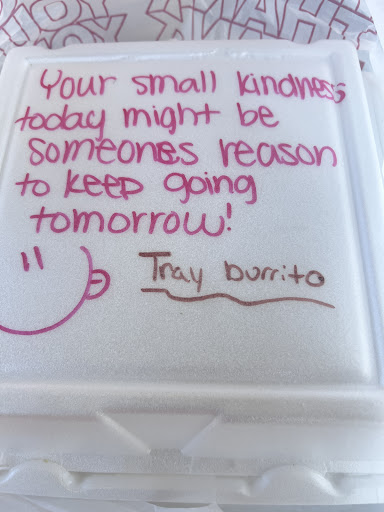 Your small kindness
today might be
someones reason
to keep going
tomorrow!
Tray burrito